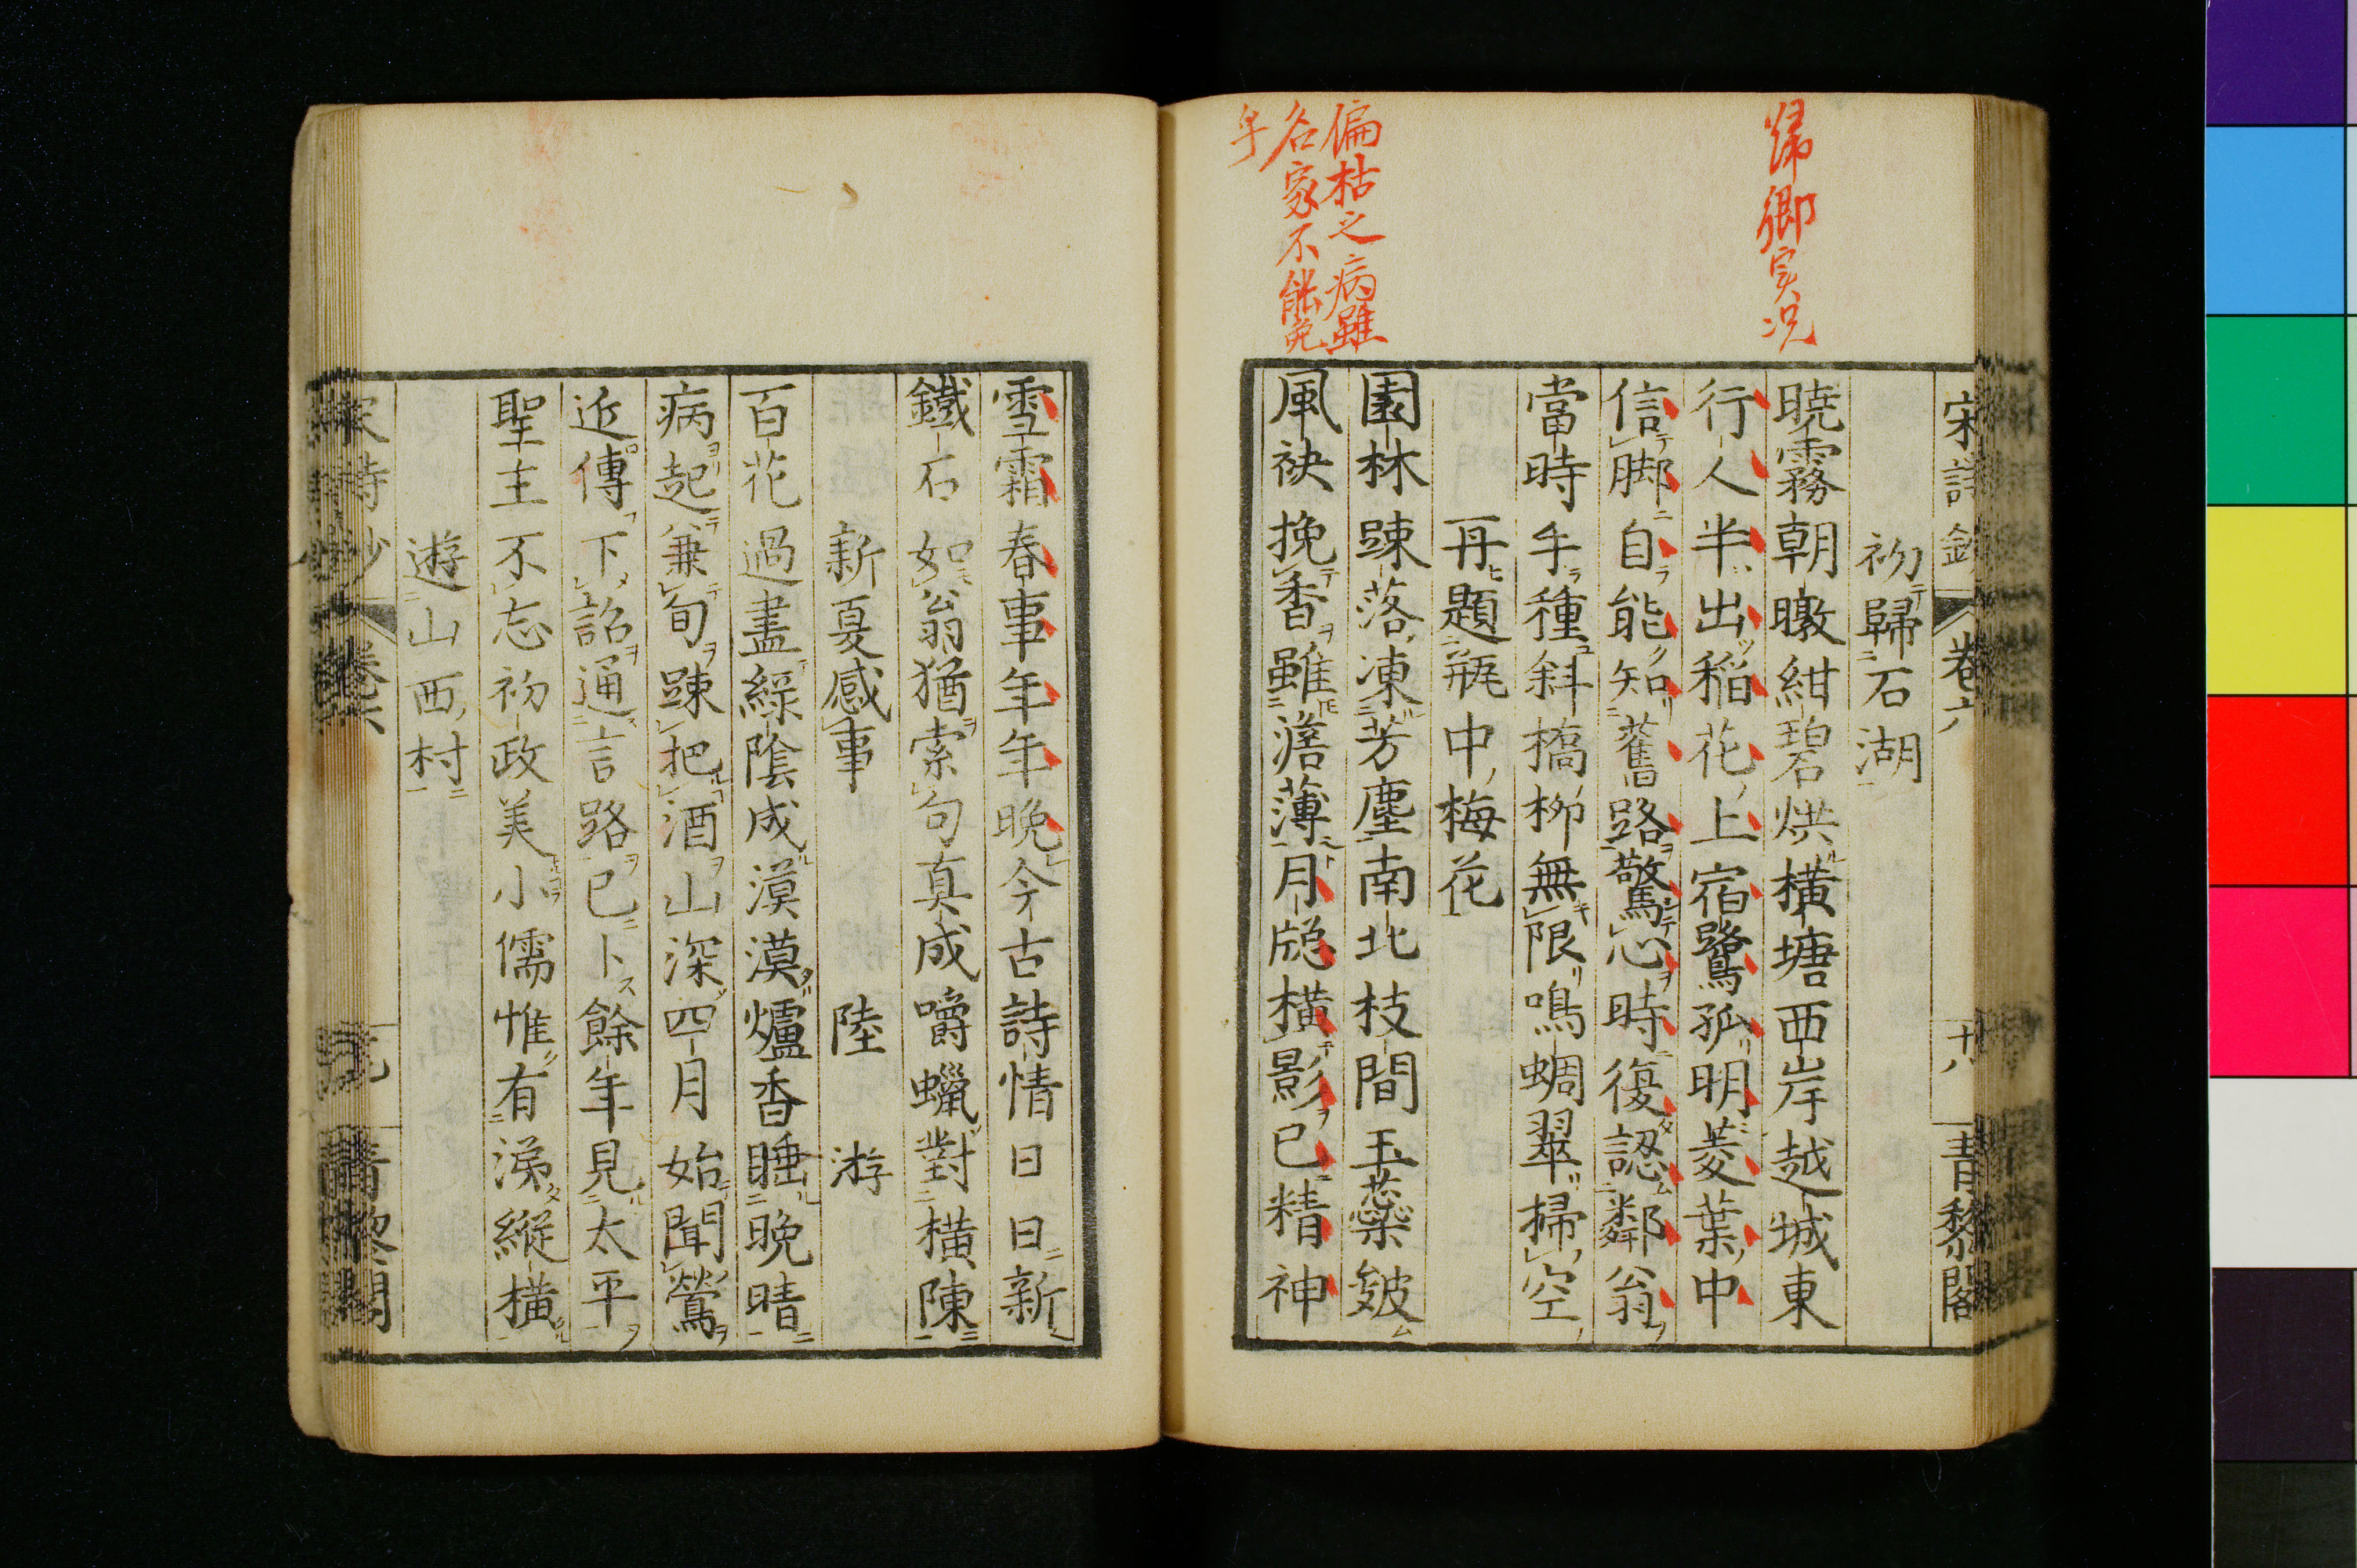 歸鄉実况
偏枯之病雖
名家不能免
乎
宋詩鈔 卷六 十八 青黎閣
初歸石湖
曉霧朝暾紺碧烘橫塘西岸越城東
行人半出稻花上宿鷺孤明菱葉中
信脚自能知舊路驚心時復認鄰翁
當時手種斜橋柳無限鳴蜩翠掃空
再題瓶中梅花
園林踈落凍芳塵南北枝間玉蘂皴
風袂挽香雖澹薄月牕橫影已精神
雪霜春事年年晚今古詩情日日新
鐵石如翁猶索句真成嚼蠟對橫陳
新夏感事 陸 游
百花過盡綠陰成漠漠爐香睡晚晴
病起兼旬踈把酒山深四月始聞鶯
近傳下詔通言路已卜餘年見太平
聖主不忘初政美小儒惟有涕縱橫
遊山西村
宋詩鈔 卷六 青黎閣